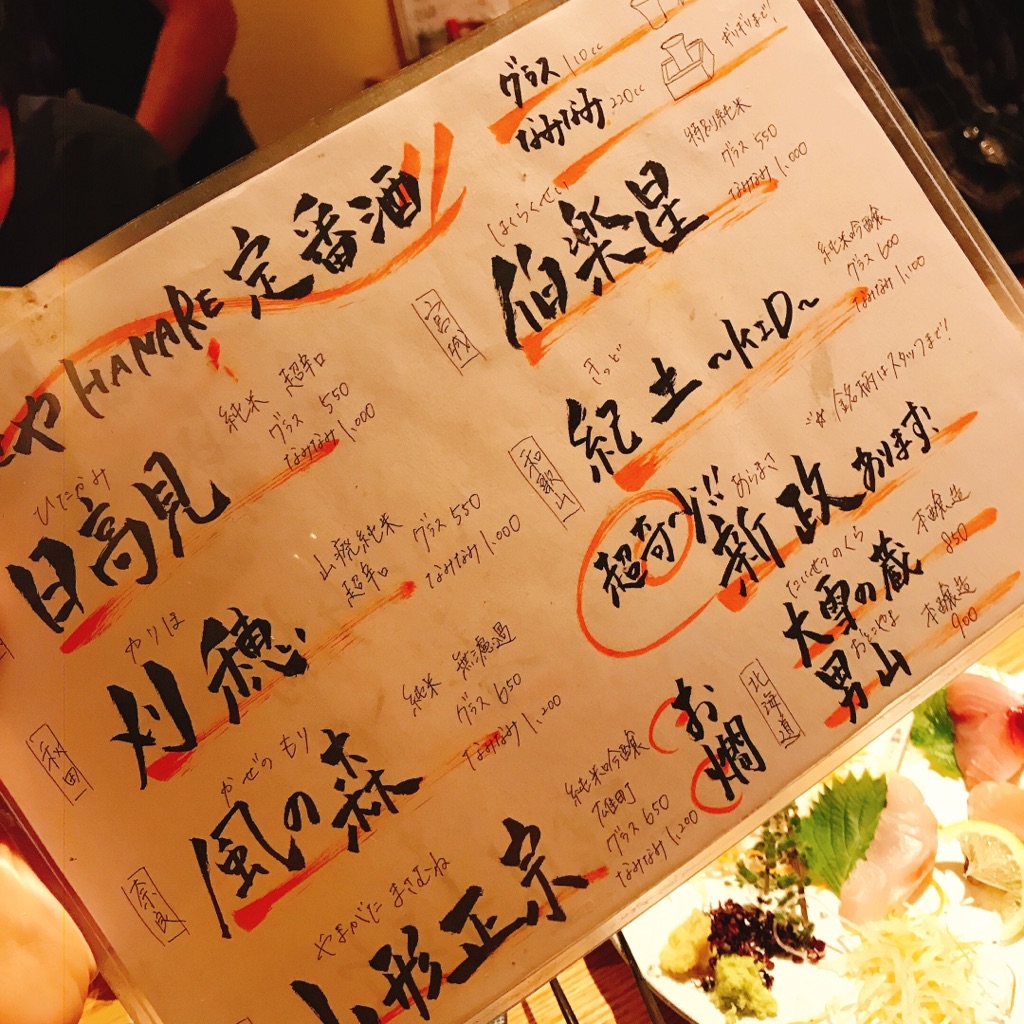 や HANARE 定番酒
ひたかみ
日高見
純米 超辛口
グラス 550
なみなみ 1,000
秋田
やりほ
刈穂
山廃純米
超辛口
グラス 550
なみなみ 1,000
奈良
かぜのもり
風の森
純米 無濾過
グラス 650
なみなみ 1,200
やまがた まさむね
山形正宗
純米吟醸
雄町
グラス 650
なみなみ 1,200
グラス 110cc
なみなみ 220cc
ギリギリまで!
宮城
はくらくせい
伯楽星
特別純米
グラス 550
なみなみ 1,000
和歌山
きっど
紀土 〜KID〜
純米吟醸
グラス 600
なみなみ 1,100
あらまさ
新政あります!
銘柄はスタッフまで!
お燗
北海道
たいせつのくら
大雪の蔵
本醸造
850
おとこやま
男山
本醸造
900